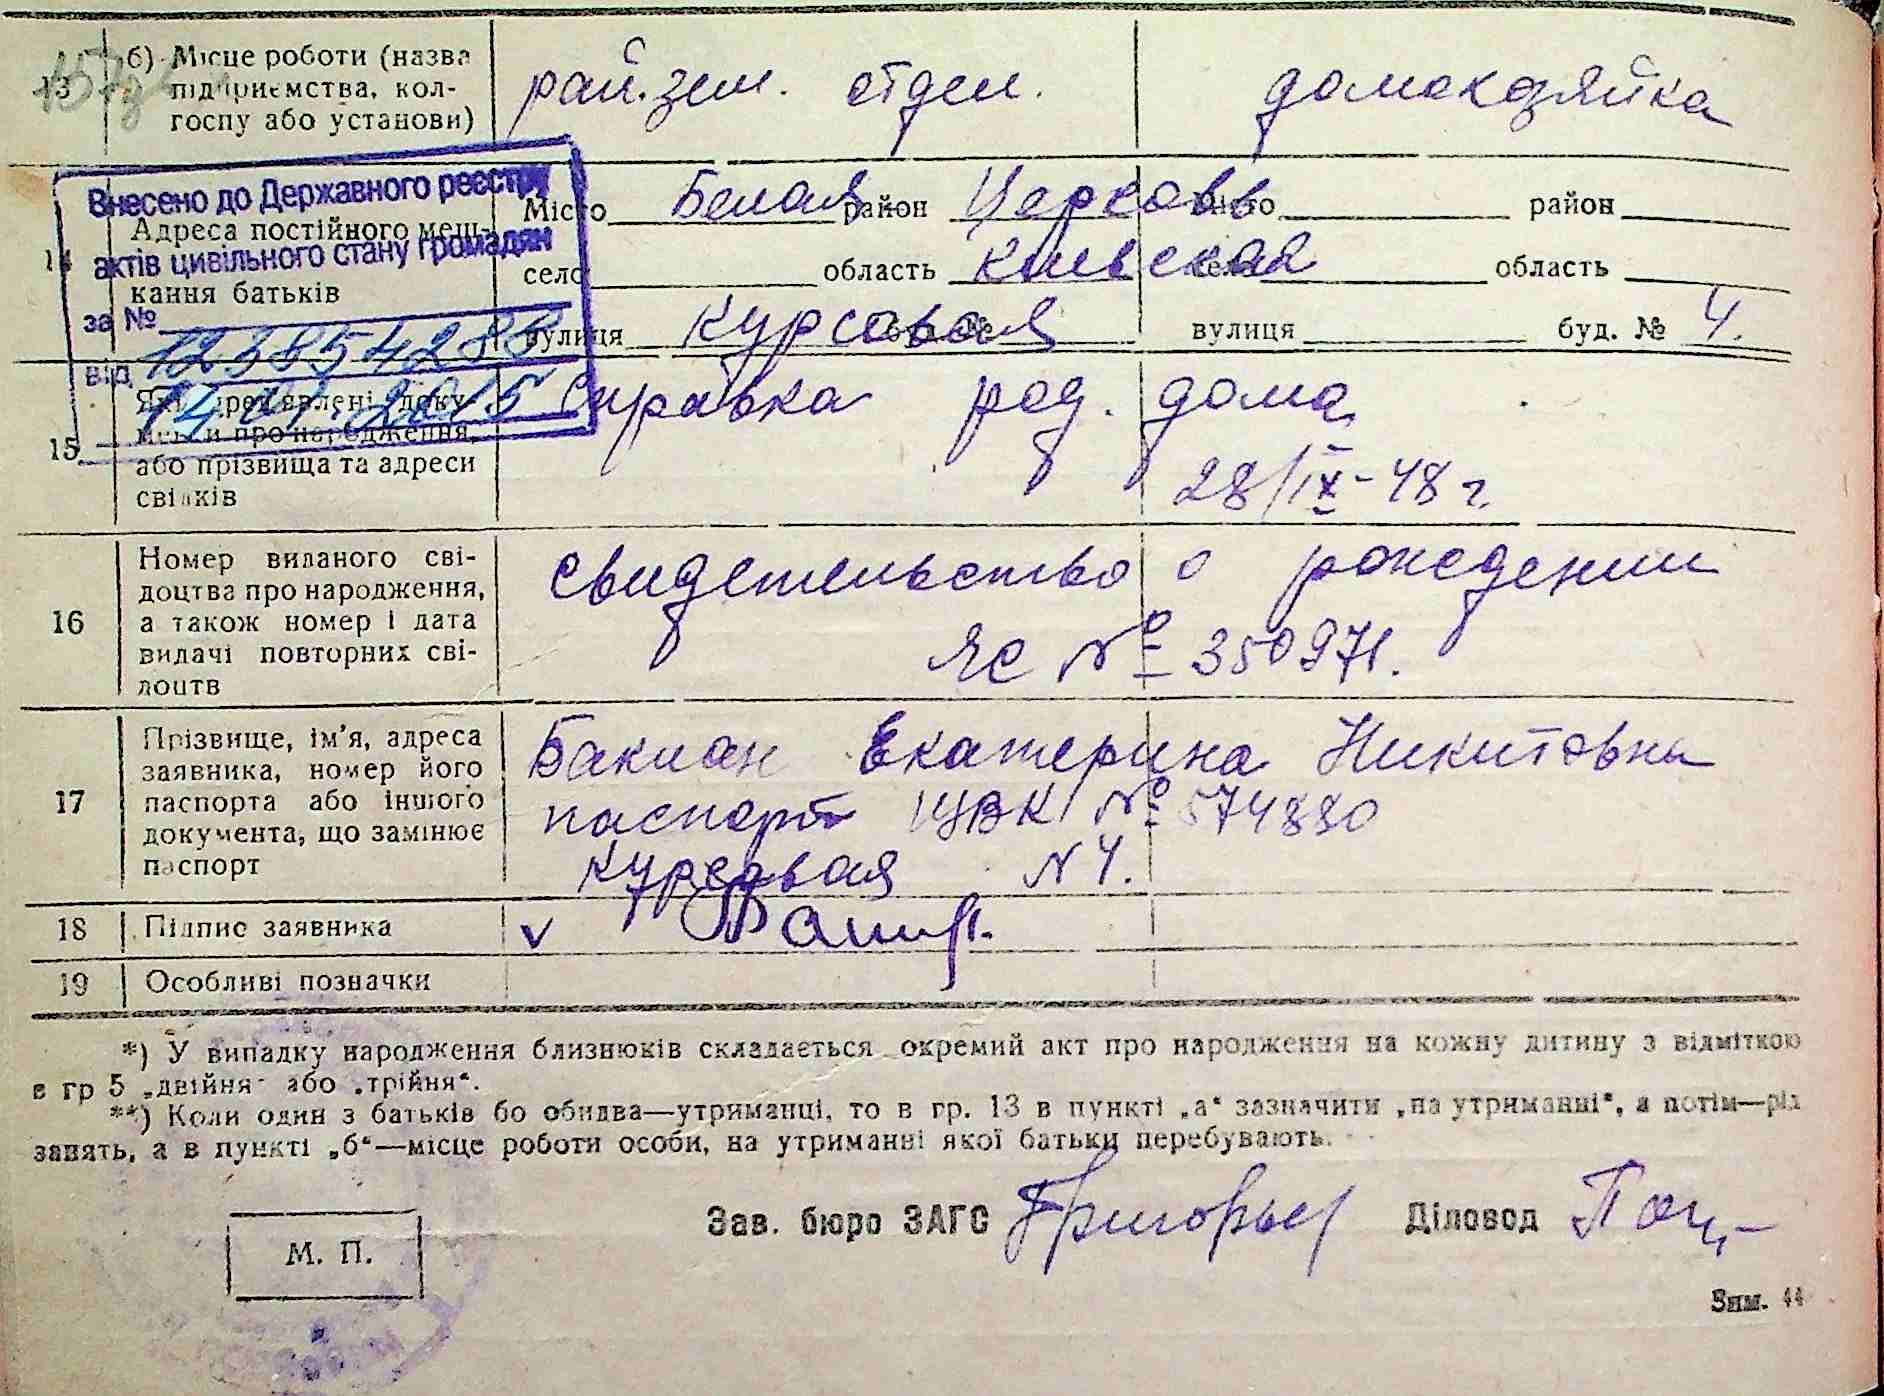 13 б) Місце роботи (назва підприємства, колгоспу або установи) рай.зем. отдел. домохозяйка
Внесено до Державного реєстру
актів цивільного стану громадян
за №
від 14.01.2015
14 Адреса постійного мешкання батьків
Місто Белая район Церковь місто район
село область Киевская село область
вулиця Курсовая буд. № вулиця буд. № 4.
15 Які пред'явлені документи про народження, або прізвища та адреси свідків
Справка род. дома
28/IX-48 г.
16 Номер виданого свідоцтва про народження, а також номер і дата видачі повторних свідоцтв
свидетельство о рождении
ЯС № 350971.
17 Прізвище, ім'я, адреса заявника, номер його паспорта або іншого документа, що замінює паспорт
Екатерина Никитовна
паспорт № 574880
Курсовая N 4.
18 Підпис заявника v
19 Особливі позначки
*) У випадку народження близнюків складається окремий акт про народження на кожну дитину з відміткою
в гр 5 „двійня" або „трійня".
**) Коли один з батьків бо обидва—утриманці, то в гр. 13 в пункті „а" зазначити „на утриманні", а потім—рід
занять, а в пункті „б"—місце роботи особи, на утриманні якої батьки перебувають.
Зав. бюро ЗАГС Діловод
М. П.
Зам. 44